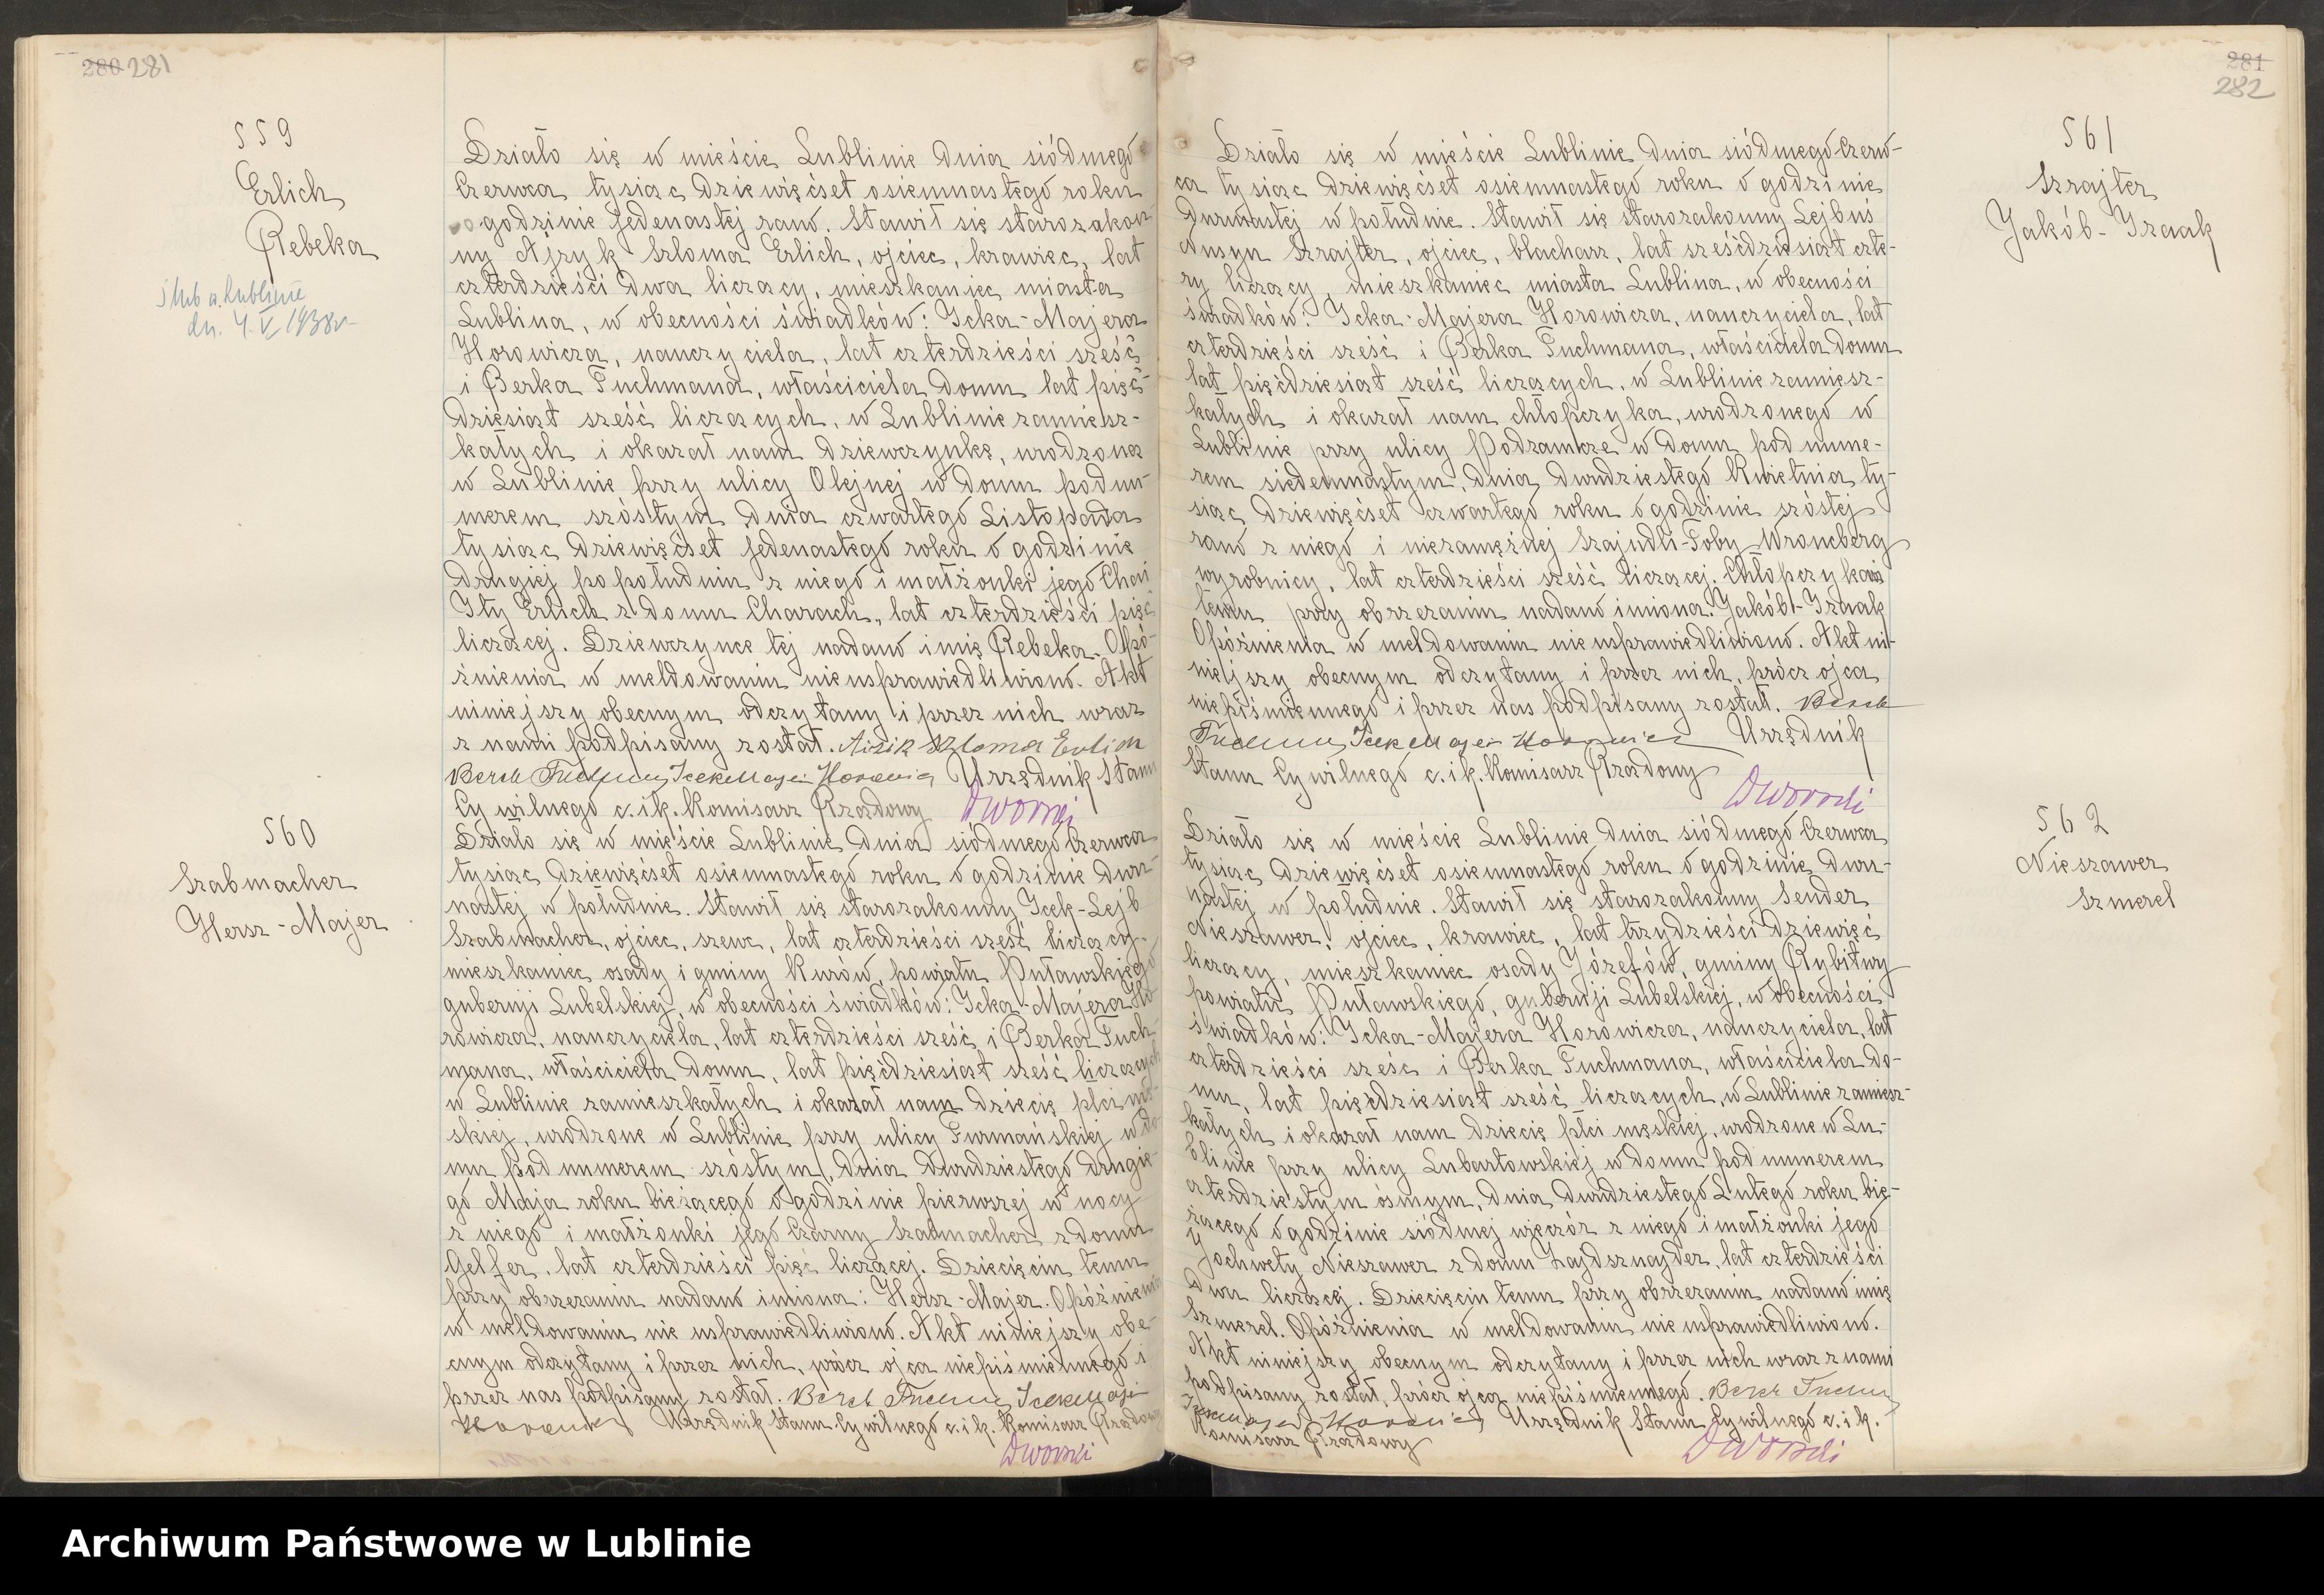 280 281
559
Erlich
Rebeka
ślub w Lublinie
dn. 4. V. 1938 r
Działo się w mieście Lublinie dnia siódmego
Czerwca tysiąc dziewięćset osiemnastego roku
o godzinie jedenastej rano. Stawił się starozakon-
ny Ajzyk Szloma Erlich, ojciec, krawiec, lat
czterdzieści dwa liczący, mieszkaniec miasta
Lublina, w obecności świadków: Icka-Majera
Horowicza, nauczyciela, lat czterdzieści sześć
i Berka Fuchmana, właściciela domu lat pięć-
dziesiąt sześć liczących, w Lublinie zamiesz-
kałych i okazał nam dziewczynkę, urodzoną
w Lublinie przy ulicy Olejnej w domu pod nu-
merem szóstym dnia czwartego Listopada
tysiąc dziewięćset jedenastego roku o godzinie
drugiej po południu z niego i małżonki jego Chai
Ity Erlich z domu Charach, lat czterdzieści pięć
liczącej. Dziewczynce tej nadano imię Rebeka. Opó-
źnienia w meldowaniu nie usprawiedliwiono. Akt
niniejszy obecnym odczytany i przez nich wraz
z nami podpisany został. Aizik Szloma Erlich
Berek Fuchman Icek Majer Horowicz Urzędnik Stanu
Cywilnego c. i k. Komisarz Rządowy Dworski
560
Szabmacher
Hersz-Majer
Działo się w mieście Lublinie dnia siódmego Czerwca
tysiąc dziewięćset osiemnastego roku o godzinie dwu-
nastej w południe. Stawił się starozakonny Icek-Lejb
Szabmacher, ojciec, szewc, lat czterdzieści sześć liczący,
mieszkaniec osady i gminy Kurów, powiatu Puławskiego
gubernji Lubelskiej, w obecności świadków: Icka-Majera Ho-
rowicza, nauczyciela, lat czterdzieści sześć i Berka Fuch-
mana, właściciela domu, lat pięćdziesiąt sześć liczących
w Lublinie zamieszkałych i okazał nam dziecię płci mę-
skiej, urodzone w Lublinie przy ulicy Furmańskiej w do-
mu pod numerem szóstym, dnia dwudziestego drugie-
go Maja roku bieżącego o godzinie pierwszej w nocy
z niego i małżonki jego Czarny Szabmacher z domu
Gelfer, lat czterdzieści pięć liczącej. Dziecięciu temu
przy obrzezaniu nadano imiona: Hersz-Majer. Opóźnienia
w meldowaniu nie usprawiedliwiono. Akt niniejszy obe-
cnym odczytany i przez nich, prócz ojca niepiśmiennego i
przez nas podpisany został. Berek Fuchman Icek Majer
Horowicz Urzędnik Stanu Cywilnego c. i k. Komisarz Rządowy
Dworski
281
282
561
Szrajter
Jakób-Izaak
Działo się w mieście Lublinie dnia siódmego Czerw-
ca tysiąc dziewięćset osiemnastego roku o godzinie
dwunastej w południe. Stawił się starozakonny Lejbuś
Nusyn Szrajter, ojciec, blacharz, lat sześćdziesiąt czte-
ry liczący, mieszkaniec miasta Lublina, w obecności
świadków: Icka-Majera Horowicza, nauczyciela, lat
czterdzieści sześć i Berka Fuchmana, właściciela domu
lat pięćdziesiąt sześć liczących, w Lublinie zamiesz-
kałych i okazał nam chłopczyka, urodzonego w
Lublinie przy ulicy Podzamcze w domu pod nume-
rem siedemnastym, dnia dwudziestego Kwietnia ty-
siąc dziewięćset czwartego roku o godzinie szóstej
rano z niego i niezamężnej Szajndli-Toby Wroneberg
wyrobnicy, lat czterdzieści sześć liczącej. Chłopczykowi
temu przy obrzezaniu nadano imiona: Jakób-Izaak
Opóźnienia w meldowaniu nie usprawiedliwiono. Akt ni-
niejszy obecnym odczytany i przez nich, prócz ojca
niepiśmiennego i przez nas podpisany został. Berek
Fuchman Icek Majer Horowicz Urzędnik
Stanu Cywilnego c. i k. Komisarz Rządowy
Dworski
562
Nieszawer
Szmerel
Działo się w mieście Lublinie dnia siódmego Czerwca
tysiąc dziewięćset osiemnastego roku o godzinie dwu-
nastej w południe. Stawił się starozakonny Sender
Nieszawer, ojciec, krawiec, lat trzydzieści dziewięć
liczący, mieszkaniec osady Józefów, gminy Rybitwy
powiatu Puławskiego, gubernji Lubelskiej, w obecności
świadków: Icka-Majera Horowicza, nauczyciela, lat
czterdzieści sześć i Berka Fuchmana, właściciela do-
mu, lat pięćdziesiąt sześć liczących, w Lublinie zamiesz-
kałych i okazał nam dziecię płci męskiej, urodzone w Lu-
blinie przy ulicy Lubartowskiej w domu pod numerem
czterdziestym ósmym, dnia dwudziestego Lutego roku bie-
żącego o godzinie siódmej wieczór z niego i małżonki jego
Jochwety Nieszawer z domu Zajdsznajder, lat czterdzieści
dwa liczącej. Dziecięciu temu przy obrzezaniu nadano imię
Szmerel. Opóźnienia w meldowaniu nie usprawiedliwiono.
Akt niniejszy obecnym odczytany i przez nich wraz z nami
podpisany został, prócz ojca niepiśmiennego. Berek Fuchman
Icek Majer Horowicz Urzędnik Stanu Cywilnego c. i k.
Komisarz Rządowy Dworski
Archiwum Państwowe w Lublinie